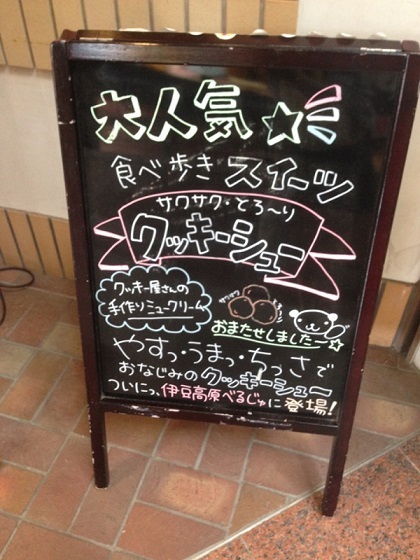 大人気☆
食べ歩きスイーツ
サクサク・とろ〜り
クッキーシュー
クッキー屋さんの
手作りシュークリーム
サクサク
とろ〜り
おまたせしましたー☆
やすっ・うまっ・ちっさで
おなじみのクッキーシュー
ついにっ、伊豆高原べるじゅに登場!